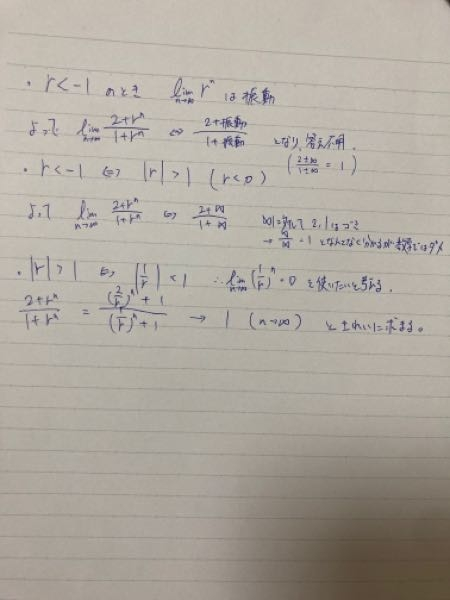 ・r<-1 のとき lim n→∞ r^n は振動
よって lim n→∞ (2+r^n)/(1+r^n) ⇔ (2+振動)/(1+振動) となり、答え不明.
((2±∞)/(1±∞) = 1)
・r<-1 ⇔ |r|>1 (r<0)
よって lim n→∞ (2+r^n)/(1+r^n) ⇔ (2+∞)/(1+∞) ∞に対して2,1は
→ ∞/∞ = 1 となんとなく分かるが数学ではダメ
・|r|>1 ⇔ |1/r|<1 ∴ lim n→∞ (1/r)^n = 0 を使いたいと考える.
(2+r^n)/(1+r^n) = ((2/r)^n+1)/((1/r)^n+1) → 1 (n→∞) ときれいに求まる。